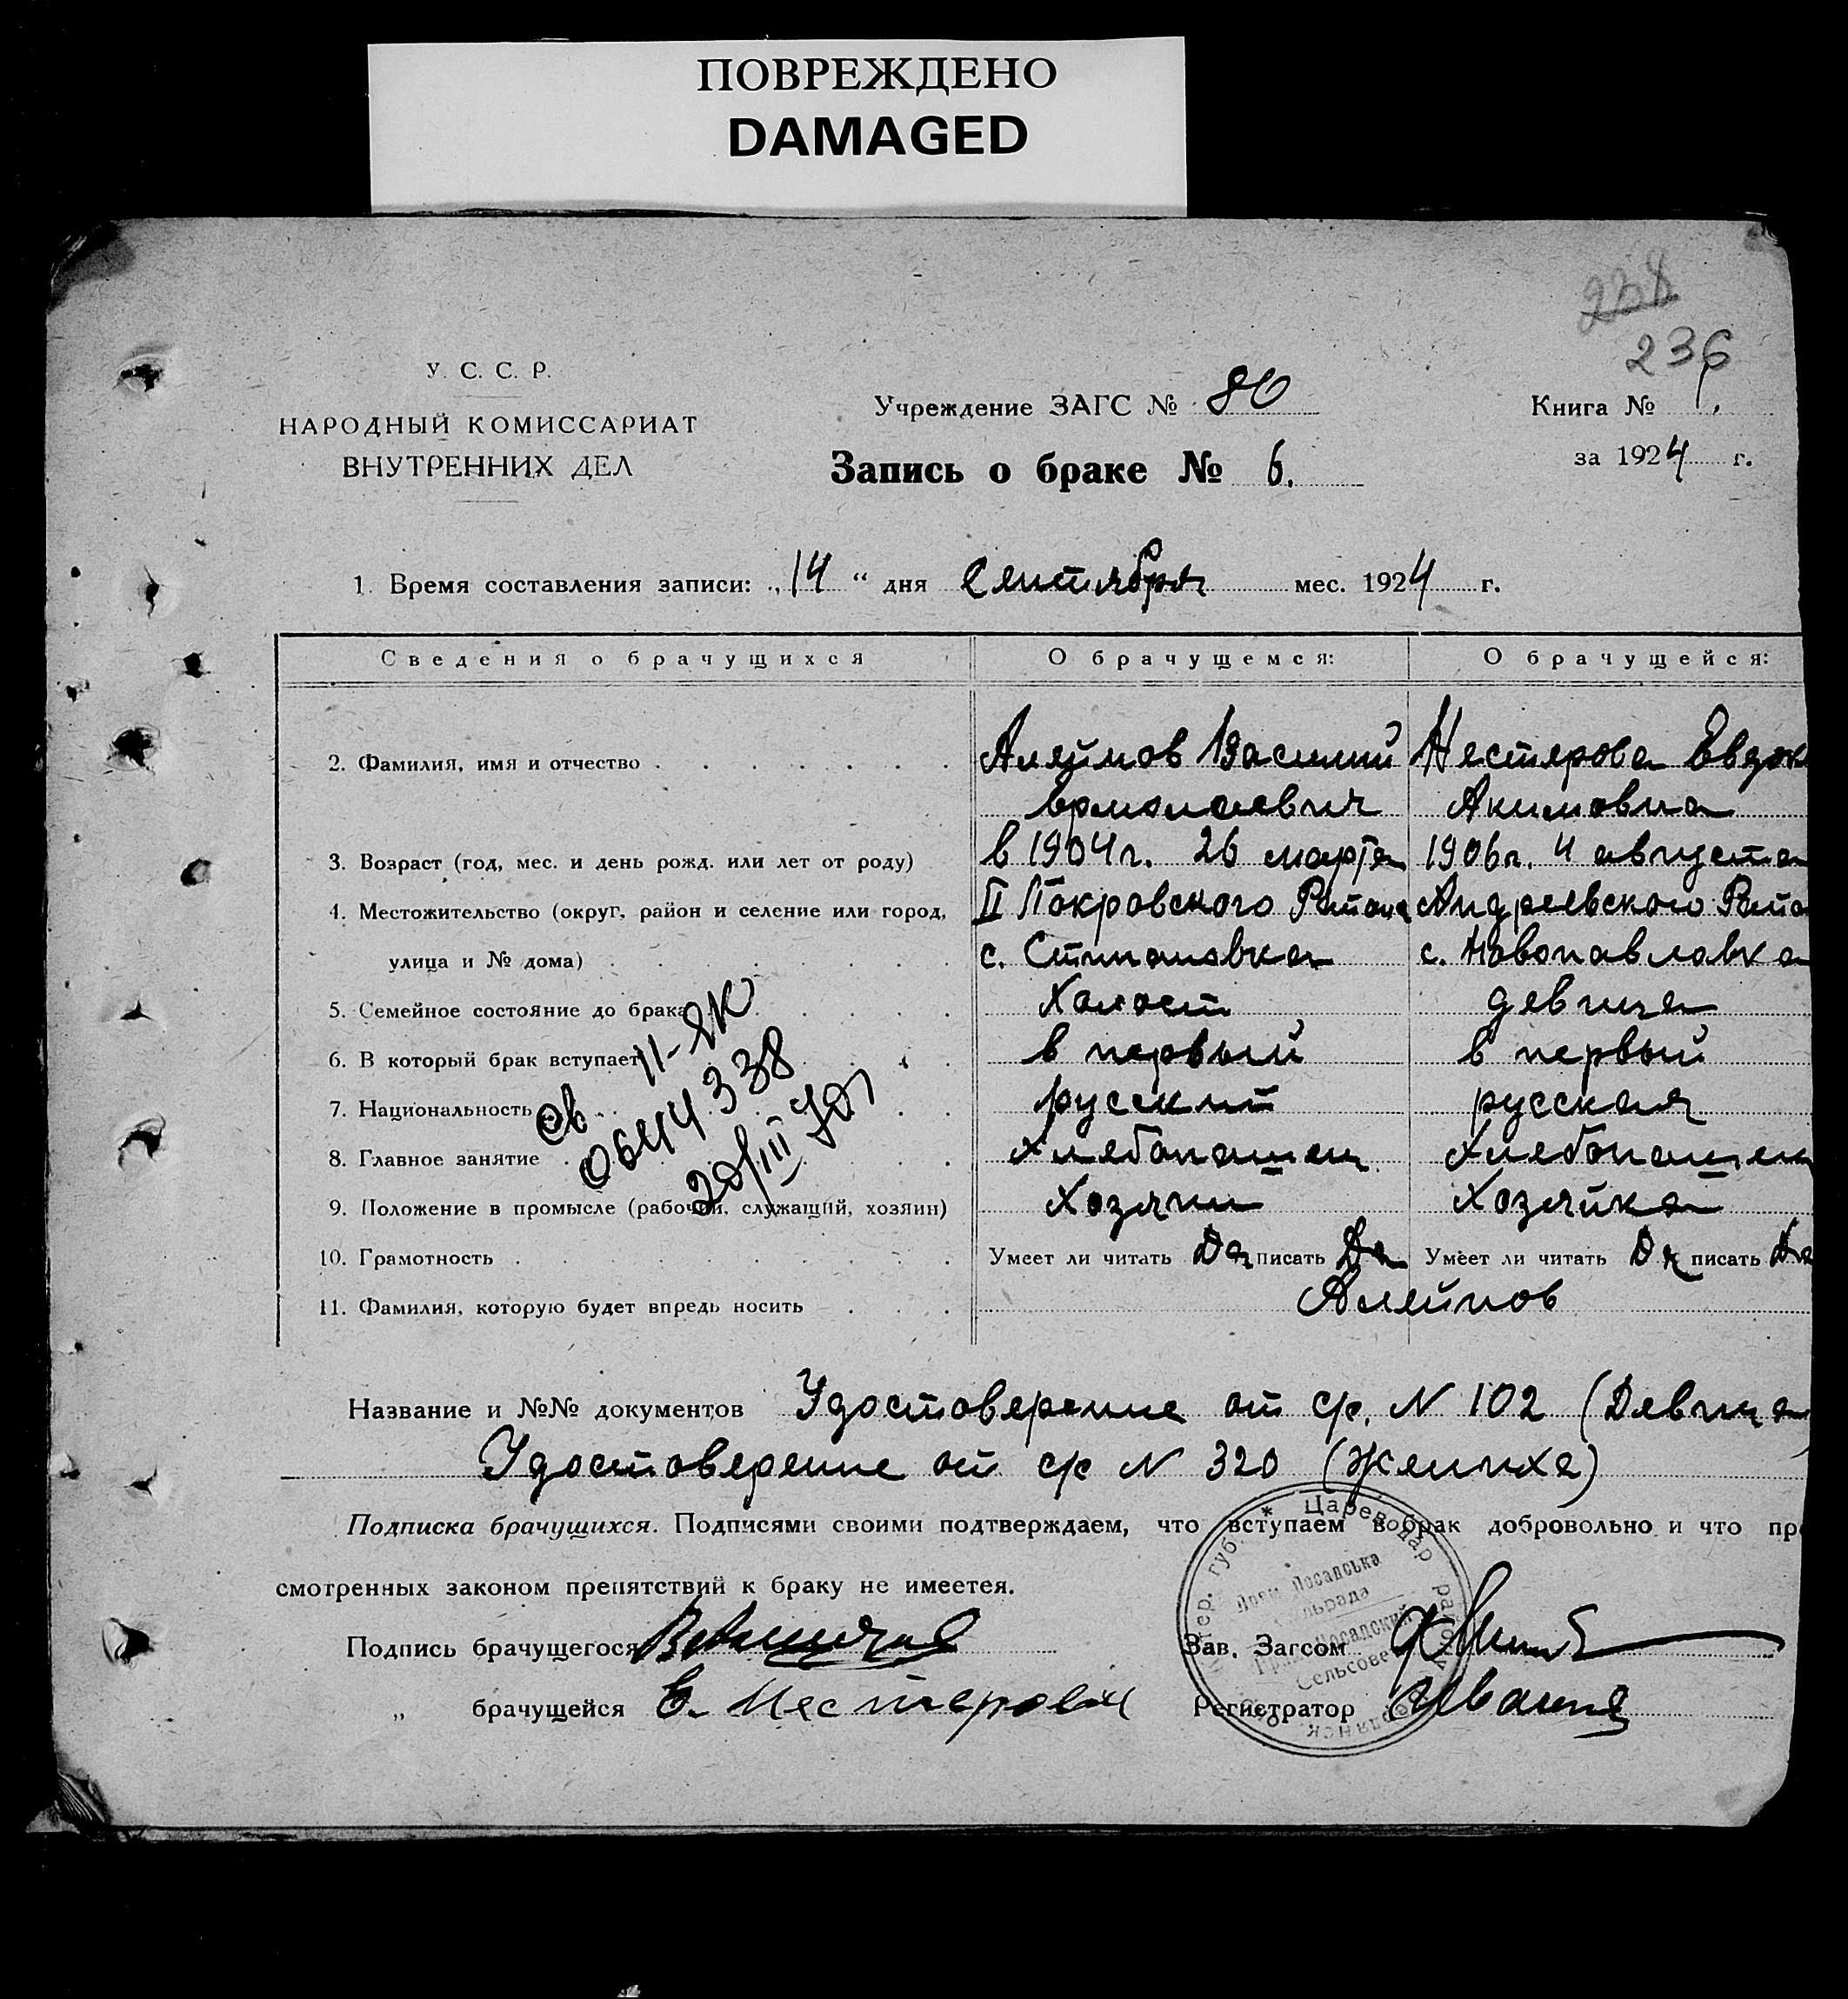 ПОВРЕЖДЕНО
DAMAGED
238
236
У. С. С. Р.
НАРОДНЫЙ КОМИССАРИАТ
ВНУТРЕННИХ ДЕЛ
Учреждение ЗАГС № 80
Книга № 1.
за 1924 г.
Запись о браке № 6.
1. Время составления записи: „14“ дня Сентября мес. 1924 г.
Сведения о брачущихся О брачущемся: О брачущейся:
2. Фамилия, имя и отчество Алейнов Василий Нестерова Евдок
Ермолаевич Акимовна
3. Возраст (год, мес. и день рожд. или лет от роду) в 1904 г. 26 марта 1906 г. 4 августа
4. Местожительство (округ, район и селение или город, II Покровского Района Андреевского Райо
улица и № дома) с. Степановка с. Новопавловка
5. Семейное состояние до брака Холост девица
6. В который брак вступает в первый в первый
7. Национальность русский русская
8. Главное занятие Хлебопашец Хлебопашец
9. Положение в промысле (рабочий, служащий, хозяин) Хозяин Хозяйка
10. Грамотность Умеет ли читать Да писать Да Умеет ли читать Да писать Да
11. Фамилия, которую будет впредь носить Алейнов
св. II-ЯЮ
0644338
Название и №№ документов Удостоверение от с/с. N 102 (Девица
Удостоверение от с/с N 320 (Жениха)
Подписка брачущихся. Подписями своими подтверждаем, что вступаем в брак добровольно и что пре
смотренных законом препятствий к браку не имеется.
Подпись брачущегося
Зав. Загсом
„ брачущейся Е. Нестерова
Регистратор